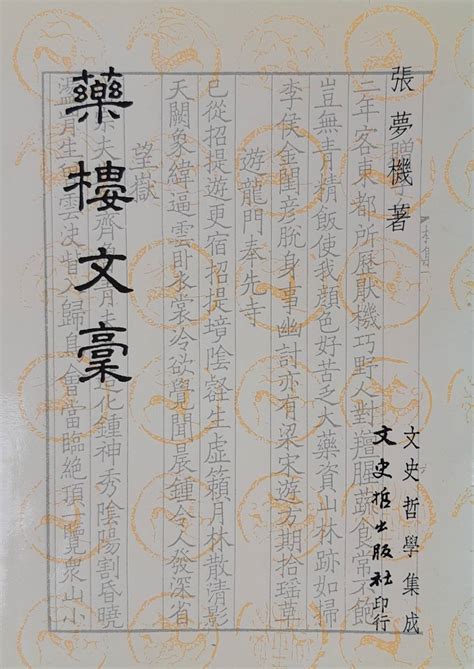 張夢機著
文史哲學集成
文史哲出版社印行
藥樓文稾
贈
二年客東都所歷厭機巧野人對羶腥蔬食常不飽
豈無青精飯使我顏色好苦乏大藥資山林跡如掃
李侯金閨彥脫身事幽討亦有梁宋遊方期拾瑤草
遊龍門奉先寺
已從招提遊更宿招提境陰壑生虛籟月林散清影
天闕象緯逼雲臥衣裳冷欲覺聞晨鍾令人發深省
望嶽
夫齊青未化鍾神秀陰陽割昏曉
生雲決眥入歸鳥會當臨絕頂一覽衆山小